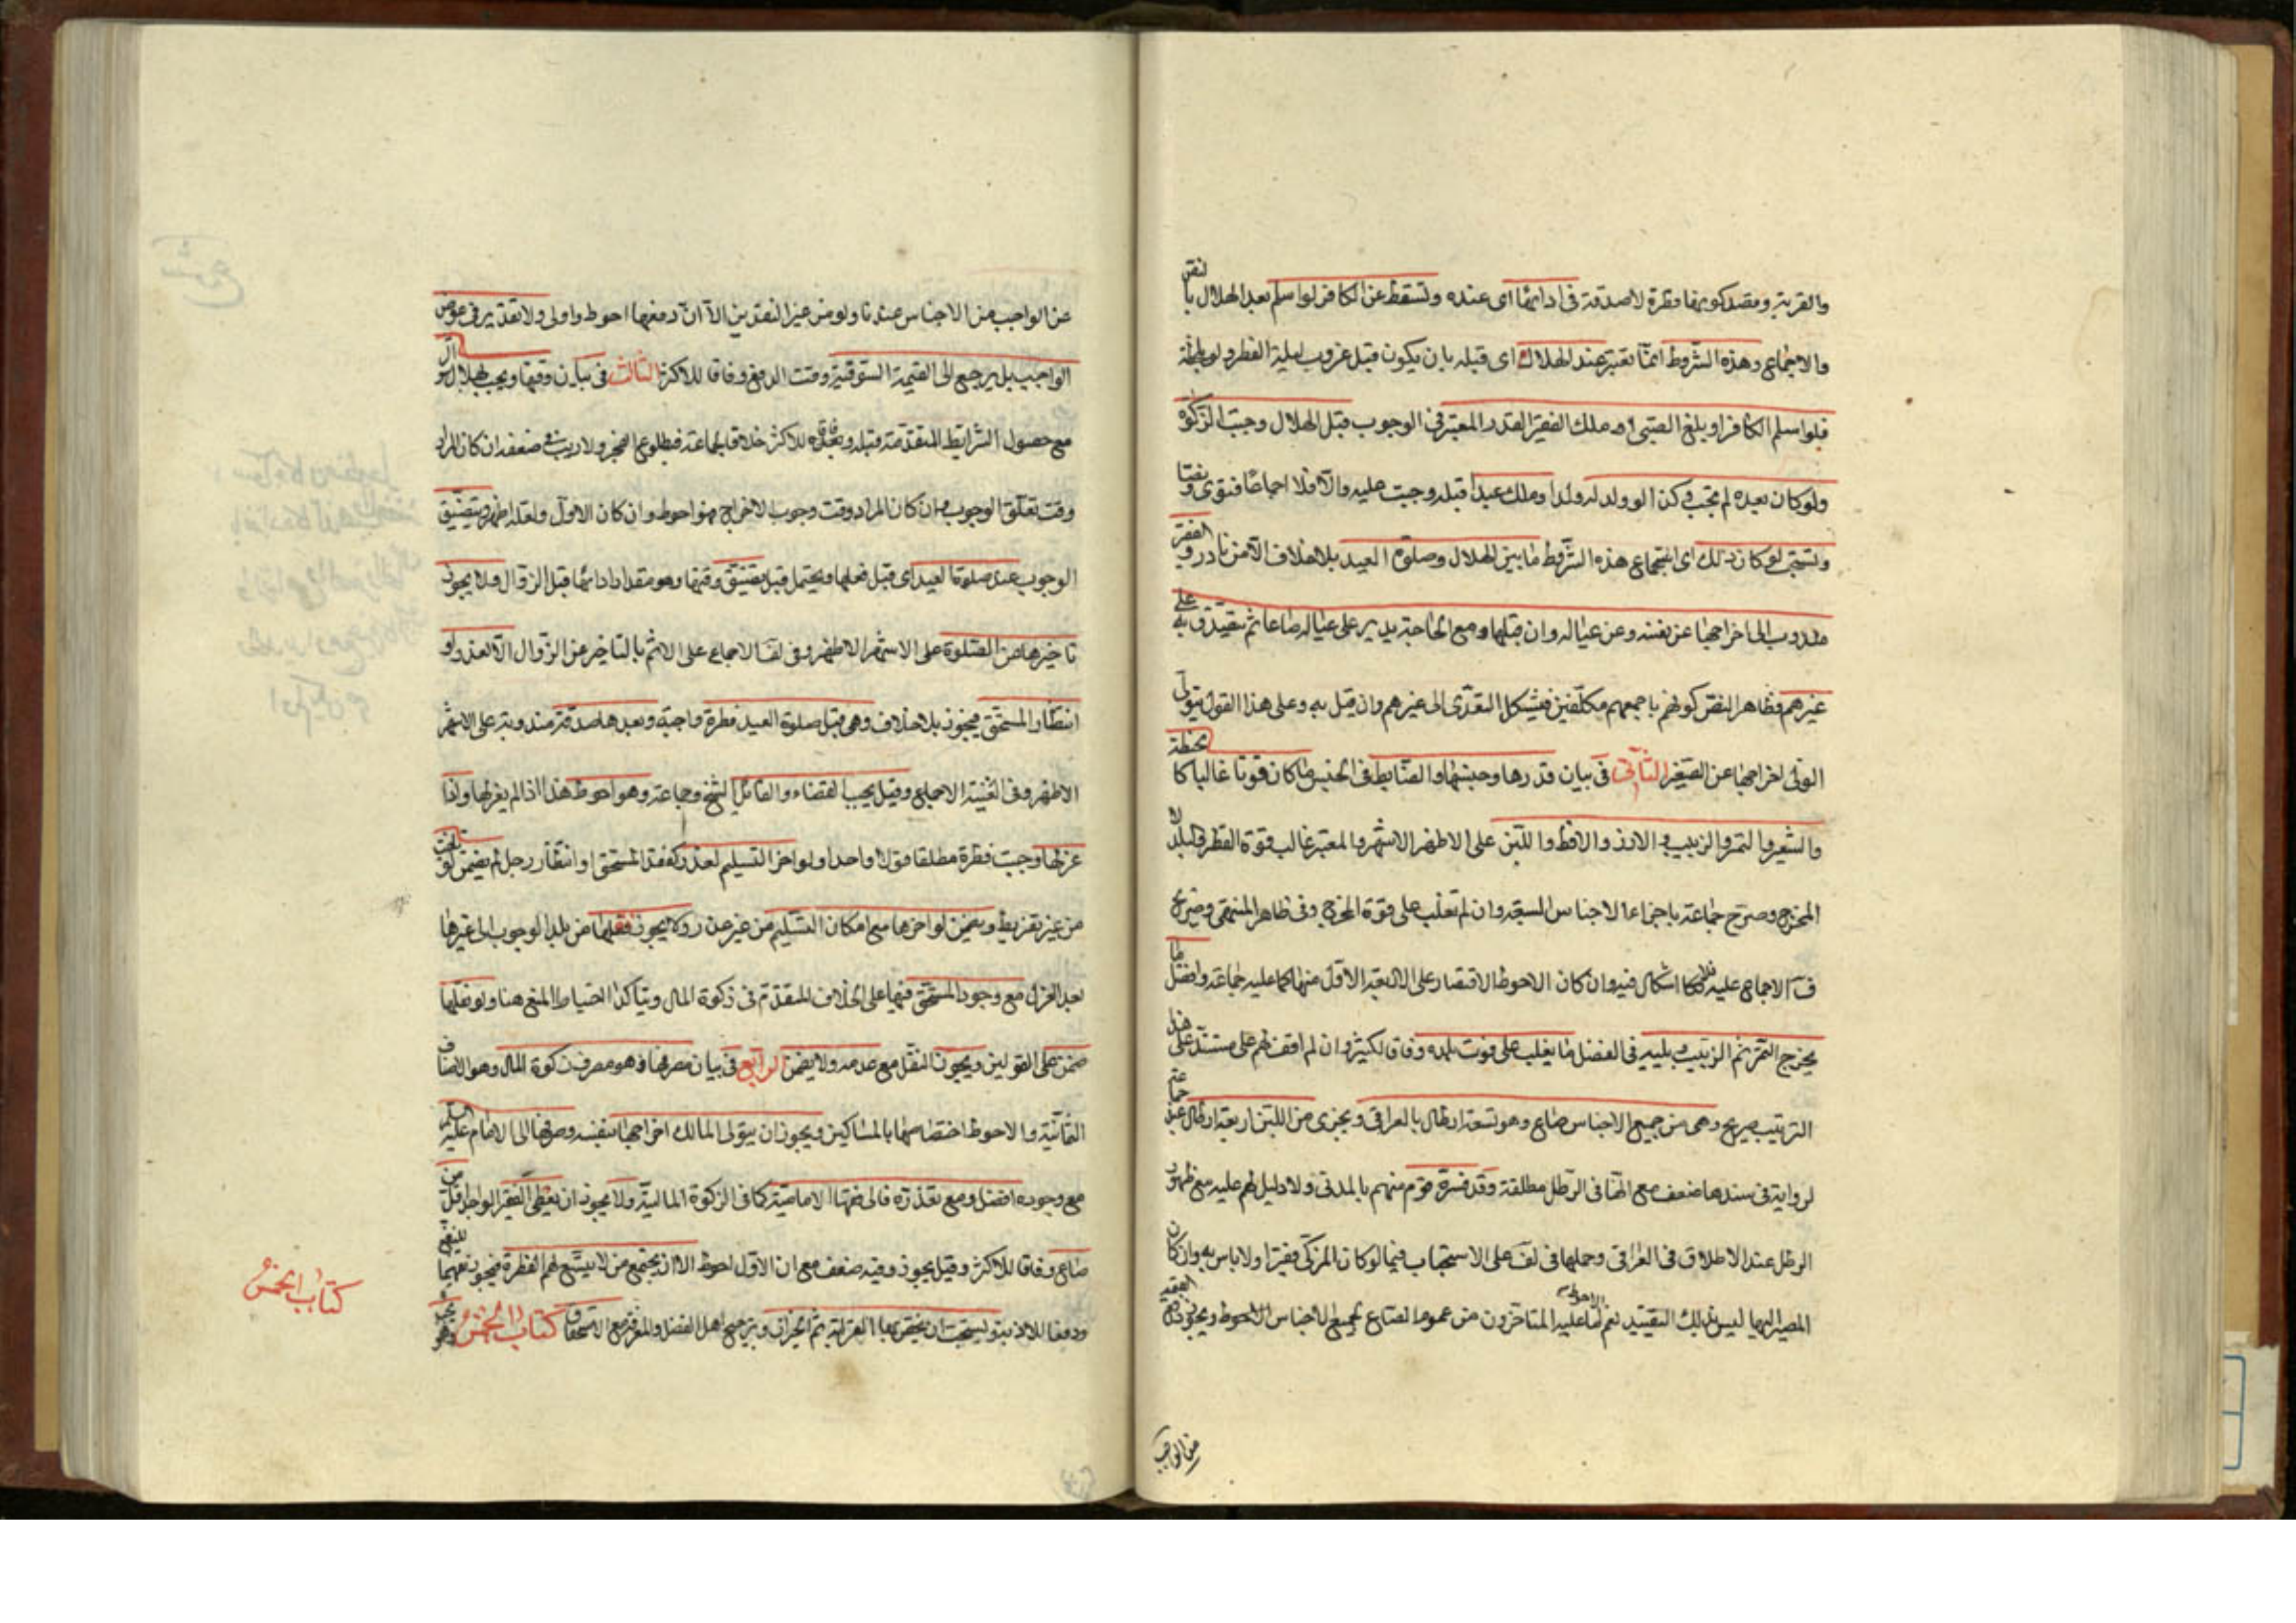 والقربة ومقصد كونها فطرة لا صدقة في ادائها اى عنده وتسقط عن الكافر لو اسلم بعد الهلال بالنص
والاجماع وهذه الشروط انما تعتبر عند الهلال اى قبله بان يكون قبل غروب ليلة الفطر ولو بلحظة
فلو اسلم الكافر او بلغ الصبي او ملك الفقير القدر المعتبر في الوجوب قبل الهلال وجبت الزكوة
ولو كان بعده لم تجب وكذا لو ولد له ولد او ملك عبدا قبله وجبت عليه والا فلا اجماعا فتوى ونصا
وتستحب لو كان ذلك اى اجتماع هذه الشروط ما بين الهلال وصلوة العيد بلا خلاف الا من نادر والفقير
مندوب الى اخراجها عن نفسه وعن عياله وان قبلها ومع الحاجة يدير على عياله صاعا ثم يتصدق به على
غيرهم وظاهر النص كونهم باجمعهم مكلفين فيشكل التعدى الى غيرهم وان قيل به وعلى هذا القول يتولى
الولى اخراجها عن الصغير الثاني في بيان قدرها وجنسها والضابط في الجنس ما كان قوتا غالبا كالحنطة
والشعير والتمر والزبيب والارز والاقط واللبن على الاظهر الاشهر والمعتبر غالب قوة القطر لا البلد
المخرج وصرح جماعة باجزاء الاجناس السبعة وان لم تغلب على قوة المخرج وفي ظاهر المنتهى وصريح
ف الاجماع عليه فلا اشكال فيه وان كان الاحوط الاقتصار على الاربعة الاول منها كما عليه جماعة وافضل ما
يخرج التمر ثم الزبيب ويليه في الفضل ما يغلب على قوت بلده وفاقا لكثير وان لم اقف لهم على مستند على هذا
الترتيب صريح وهى من جميع الاجناس صاع وهو تسعة ارطال بالعراقي ويجزى من اللبن اربعة ارطال عند جماعة
لرواية في سندها ضعف مع انها في الرطل مطلقة وقد فسره قوم منهم بالمدني ولا دليل لهم عليه مع ظهور
الرطل عند الاطلاق في العراقي وحملها في لف على الاستحباب فيما لو كان المزكى فقيرا ولا باس به وان كان
المصير اليها ليس بذلك البعيد نعم ما عليه المتاخرون من عموم الصاع لجميع الاجناس الاحوط ويجوز دفع القيمة
من الواجب
عن الواجب من الاجناس عندنا ولو من غير النقدين الا ان دفعها احوط واولى ولا تقدير في عوض
الواجب بل يرجع الى القيمة السوقية وقت الدفع وفاقا للاكثر الثالث في بيان وقتها ويجب بهلال شوال
مع حصول الشرايط المتقدمة قبله وعنده للاكثر خلافا لجماعة فبطلوع الفجر ولا ريب في ضعفه ان كان المراد
وقت تعلق الوجوب وان كان المراد وقت وجوب الاخراج فهو احوط وان كان الاول ولعله اظهر ويتضيق
الوجوب عند صلوة العيد اى قبل فعلها ويحتمل قبل تضيق وقتها وهو مقدار ادائها قبل الزوال ولا يجوز
تاخيرها عن الصلوة على الاشهر الاظهر وفي لف الاجماع على الاثم بالتاخير عن الزوال الا لعذر او
انتظار المستحق فيجوز بلا خلاف وهى قبل صلوة العيد فطرة واجبة وبعدها صدقة مندوبة على الاشهر
الاظهر وفي الغنية الاجماع وقيل يجب القضاء والقائل الشيخ وجماعة وهو احوط هذا اذا لم يعزلها واذا
عزلها وجبت فطرة مطلقا قولا واحدا ولو اخر التسليم لعذر كفقد المستحق او انتظار رجل لم يضمن لو تلفت
من غير تفريط ويضمن لو اخرها مع امكان التسليم من غير عذر ولا يجوز نقلها من بلد الوجوب الى غيرها
بعد العزل مع وجود المستحق فيها على الخلاف المتقدم في زكوة المال ويتاكد احتياط المنع هنا ولو نقلها
ضمن على القولين ويجوز النقل مع عدمه ولا يضمن الرابع في بيان مصرفها وهو مصرف زكوة المال وهو الاصناف
الثمانية والاحوط اختصاصها بالمساكين ويجوز ان يتولى المالك اخراجها بنفسه وصرفها الى الامام عليه السلم
مع وجوده افضل ومع تعذره فالى فقهاء الامامية كما في الزكوة المالية ولا يجوز ان يعطى الفقير الواحد اقل من
صاع وفاقا للاكثر وقيل يجوز وفيه ضعف مع ان الاول احوط الا ان يجتمع من لا يتسع لهم الفطرة فيجوز تعميما للنفع
ودفعا للاذية ويستحب ان يختص بها القرابة ثم الجيران وترجيح اهل الفضل والمعرفة مع الاستحقاق كتاب الخمس وهو يجب
كتاب الخمس